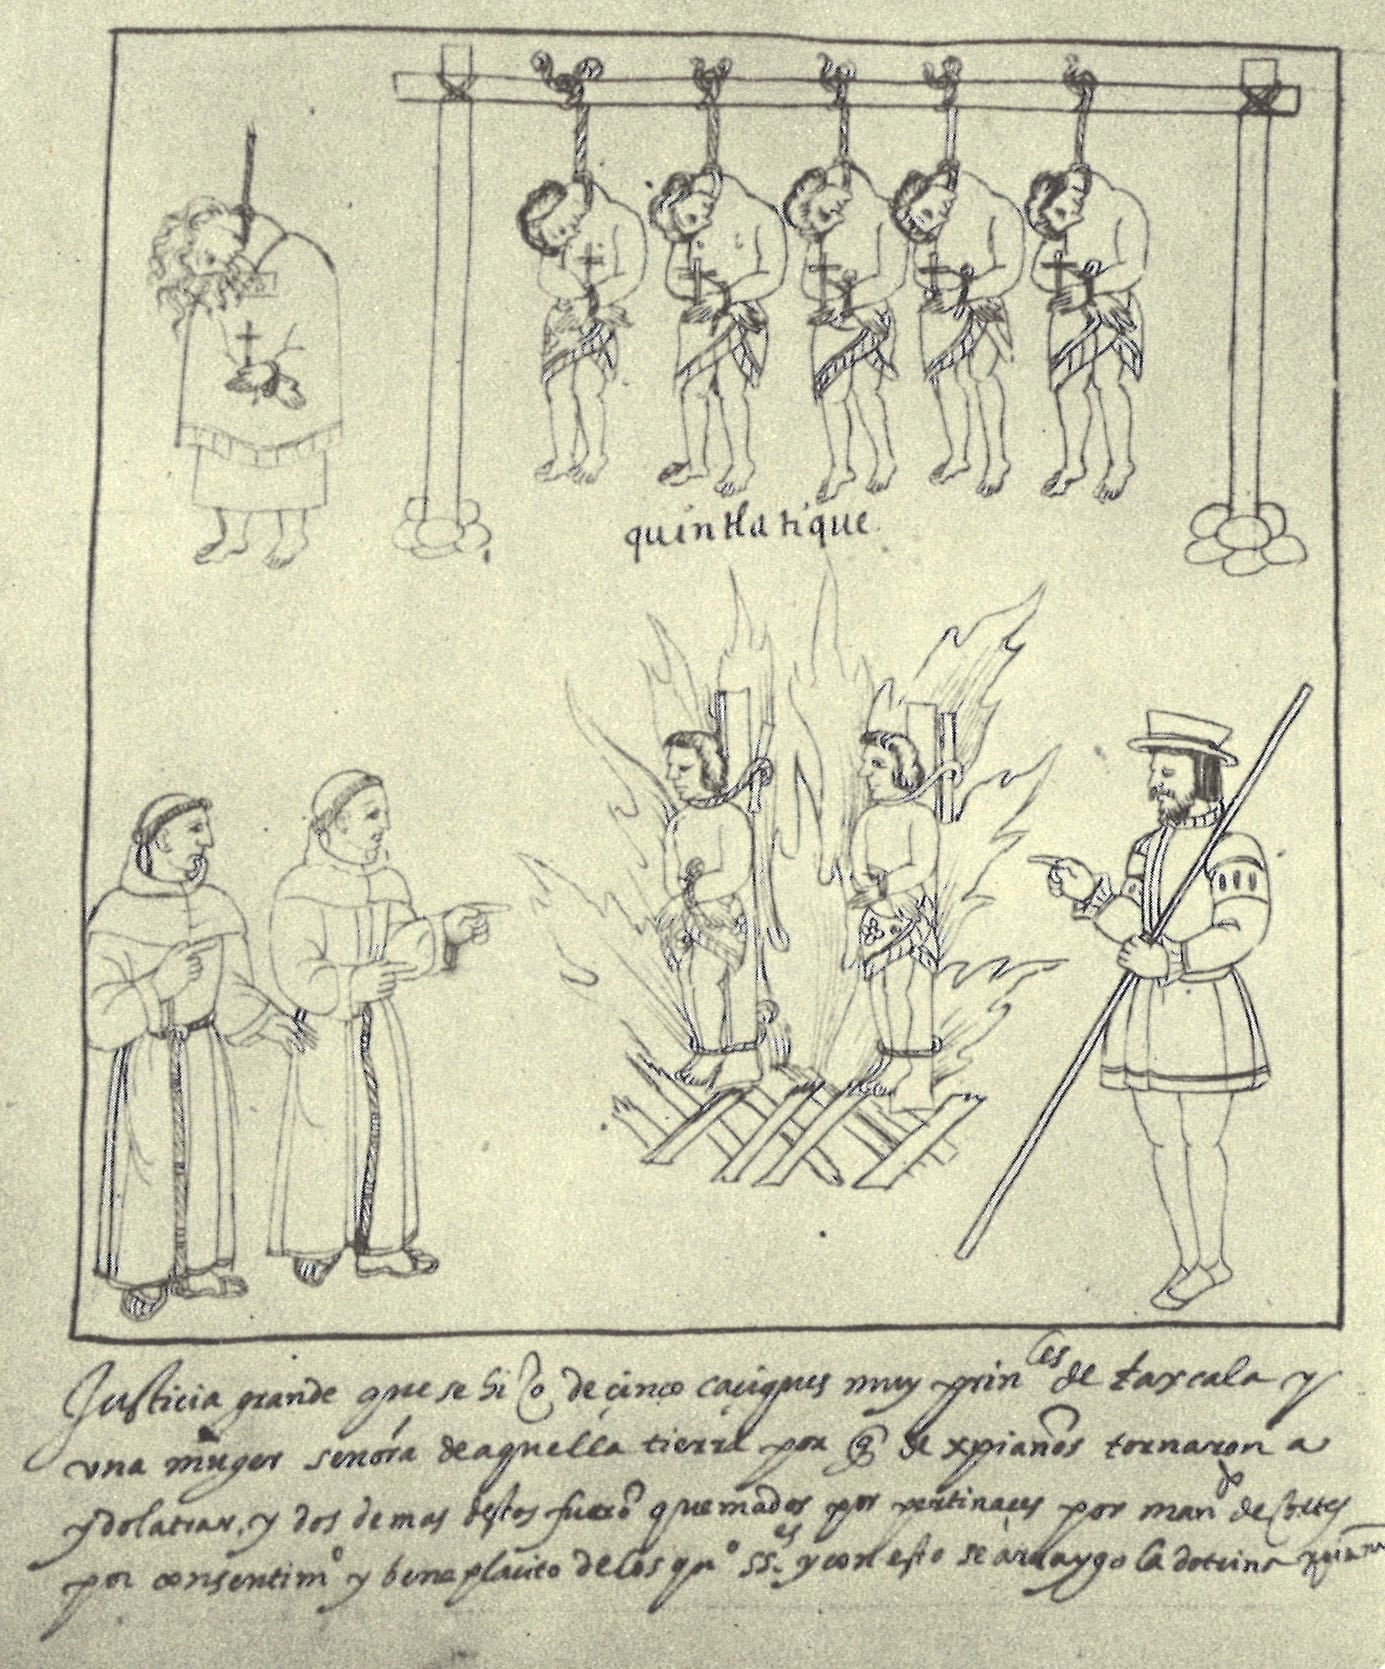 quintlatique
Justicia grande que se hiço de cinco caciques muy prinçes de taxcala y
una muger señora de aquella tierra por q de xpianos tornaron a
ydolatrar, y dos demas destos fuerō quemados por pertinaces por mando de Cortes
por consentimo y beneplacito de los quo sses y con esto se arraygo la dotrina xpiana